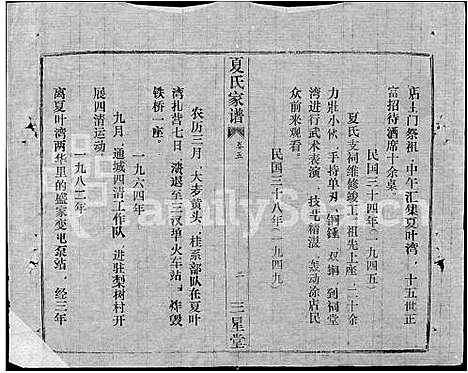 店土门祭祖，中午汇集夏叶湾，十五世正
富招待酒席十余桌。
民国三十四年（一九四五）
夏氏支祠维修竣工，祖先上座，二十余
力壮小伙，手持单刀、铜锤、双锏，到祠堂
湾进行武术表演，技艺精湛，轰动涂店民
众前来观看。
民国三十八年（一九四九）
夏氏家谱
卷五
二
三星堂
农历三月，大麦黄头，桂系部队在夏叶
湾扎营七日，溃退至三汊埠火车站，炸毁
铁桥一座。
一九六四年
九月，通城四清工作队，进驻梨树村开
展四清运动。
一九八二年
离夏叶湾两华里的盛家变电泵站，经三年
FamilySearch